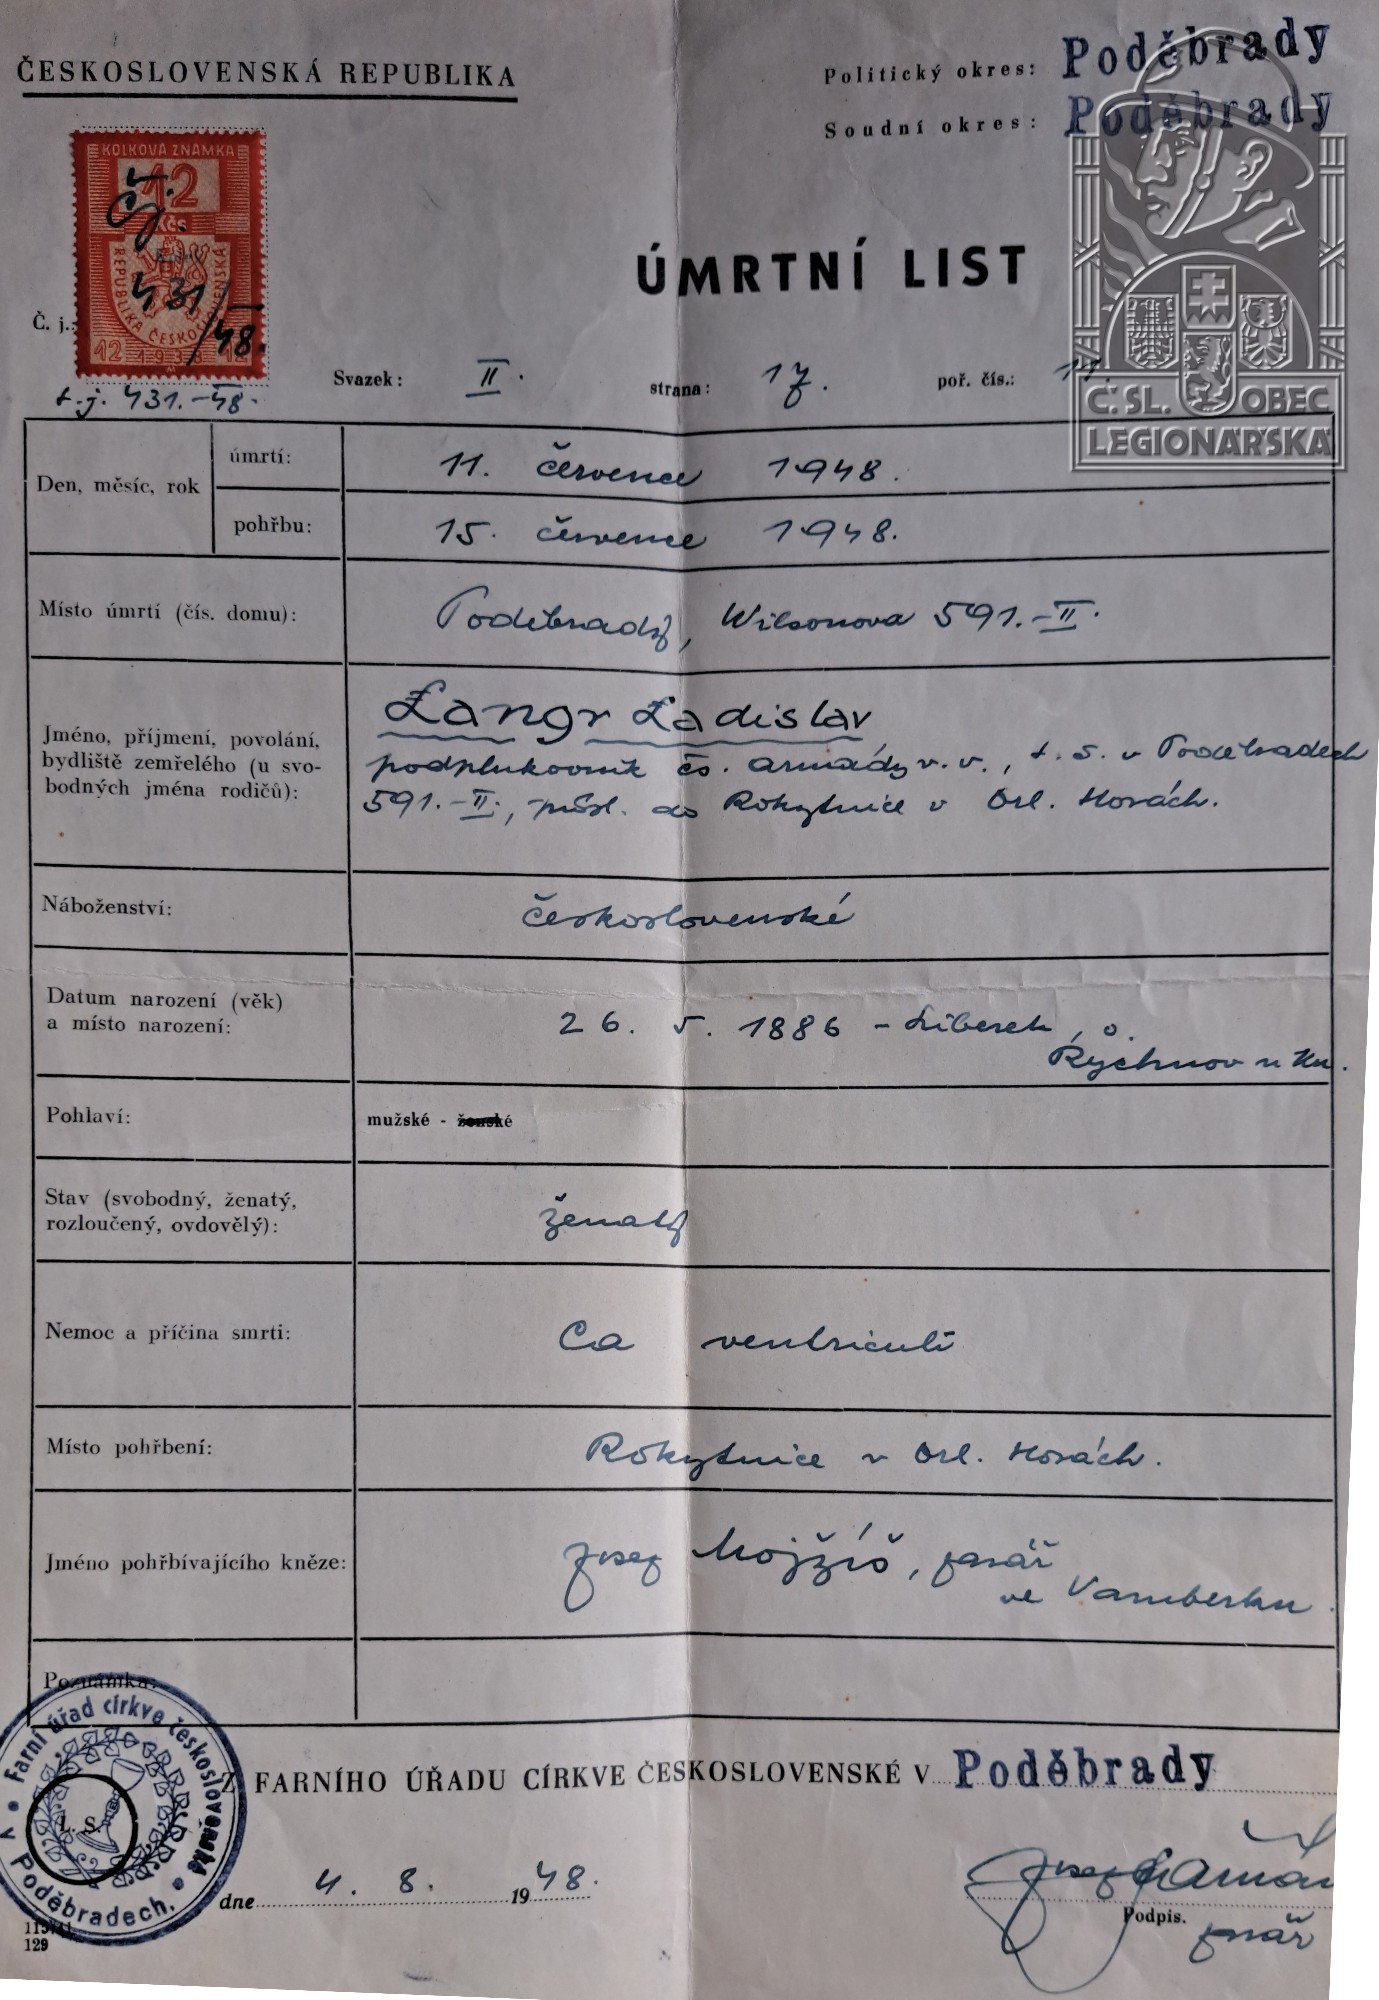 ČESKOSLOVENSKÁ REPUBLIKA
Politický okres: Poděbrady
Soudní okres: Poděbrady
KOLKOVÁ ZNÁMKA
12
Kčs
REPUBLIKA ČESKOSLOVENSKÁ
12 1938 12
čj.
431/48.
ÚMRTNÍ LIST
Č. j.:
t.j. 431.-48.
Svazek: II. strana: 17. poř. čís.:
Č. SL. OBEC
LEGIONÁŘSKÁ
Den, měsíc, rok
úmrtí: 11. července 1948.
pohřbu: 15. července 1948.
Místo úmrtí (čís. domu): Poděbrady, Wilsonova 591.-II.
Jméno, příjmení, povolání,
bydliště zemřelého (u svo-
bodných jména rodičů):
Langr Ladislav
podplukovník čs. armády v.v., t. s. v Poděbradech
591.-II., přísl. do Rokytnice v Orl. Horách.
Náboženství: československé
Datum narození (věk)
a místo narození:
26. 5. 1886 - Liberek, o.
Rychnov n Kn.
Pohlaví: mužské - ženské
Stav (svobodný, ženatý,
rozloučený, ovdovělý):
ženatý
Nemoc a příčina smrti: Ca ventriculi
Místo pohřbení: Rokytnice v Orl. Horách.
Jméno pohřbívajícího kněze: Josef Mojžíš, farář
ve Vamberku.
Poznámka:
Farní úřad církve československé
v Poděbradech.
L. S.
Z FARNÍHO ÚŘADU CÍRKVE ČESKOSLOVENSKÉ V Poděbrady
dne 4. 8. 1948.
Josef
Podpis.
farář
129